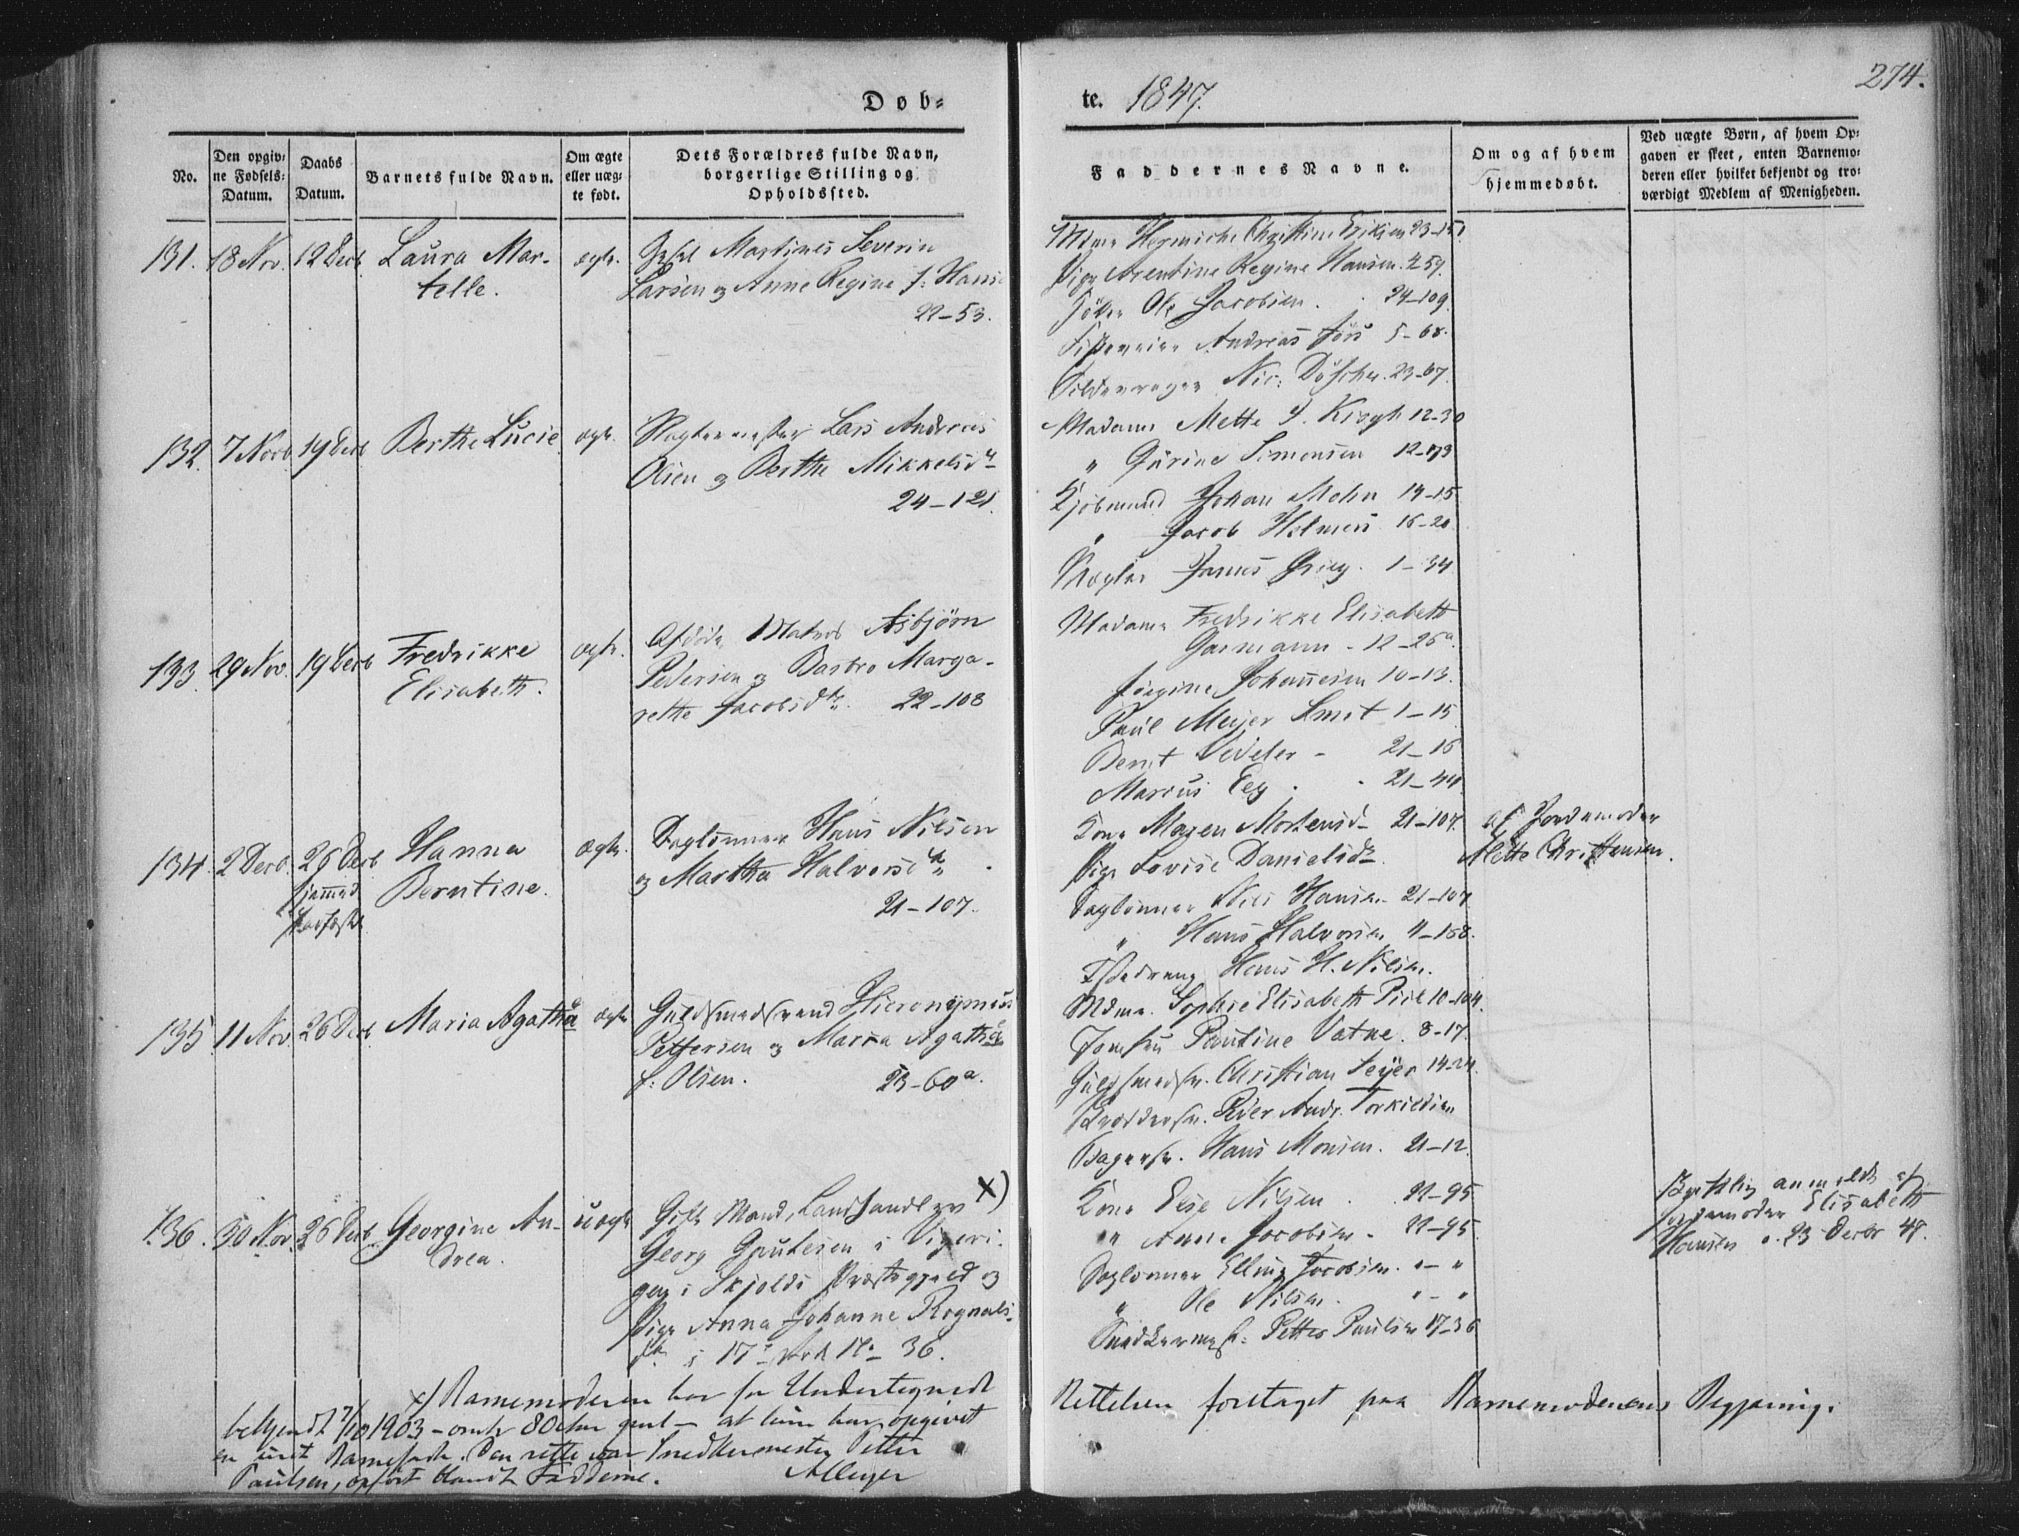 Døb=
te. 1847.
274.
No.
Den opgiv=
ne Fødsels=
Datum.
Daabs
Datum.
Barnets fulde Navn.
Om ægte
eller uæg=
te født.
Dets Forældres fulde Navn,
borgerlige Stilling og
Opholdssted.
Faddernes Navne.
Om og af hvem
hjemmedøbt.
Ved uægte Børn, af hvem Op=
gaven er skeet, enten Barnemo=
deren eller hvilket bekjendt og tro=
værdigt Medlem af Menigheden.
131. 18 Nov. 12 Decb. Laura Mar-
telle.
ægte.
Martines Severin
Larsen og Anne Regine f: Hans
22-53.
Christine Eriksen 23-151.
Pige Arentine Regine Hansen. 4-59.
Ole Jacobsen. 24-109.
Andreas 5-68.
Nic: Døscher. 23-67.
132. 7 Novb 19 Decb Berthe Lucie ægte.
Lars Andreas
Olsen og Berthe Mikkelsdtr
24-121.
Madame Mette S. Krogh 12-30
" Gurine Simonsen 12-173
Kjøbmand Johan Mohn 14-15
" Jacob Holmers 16-20
Mægler James Grieg. 1-34
133. 29 Nov. 19 Decb Fredrikke
Elisabeth.
ægte.
Afdøde Matros Asbjørn
Pedersen og Bastro Marga-
rethe Jacobsdtr. 22-108
Madame Fredrikke Elisabeth
Garmann - 12-26a.
Jørgine Johannesen 10-13.
Paul Meyer Smit 1-15
Bernt Vedeler - 21-16
Marcus Eeg . . 21-44
134. 2 Decb. 26 Decb Hanna
Berntine.
ægte.
Daglønner Hans Nilsen
og Martha Halvorsdtr.
21-107.
Kone Maren Mortensd- 21-107.
Pige Lovise Danielsdtr.
Daglønner Nils Hansen. 21-107
" Hans Halvorsen 11-158.
Hans H. Nilsen.
af Jordemoder
Mette Christensen.
135. 11 Nov. 26 Decb. Maria Agatha ægte
Guldsmedsvend Hieronymus
Pettersen og Maria Agatha
f: Olsen. 23-60a.
Mdme. Sophie Elisabeth Piil 10-104.
Jomfru Pauline Vatne. 8-17.
Guldsmedsv. Christian Seyer 14-24.
Peder Andr. Torkildsen
Bagersv. Hans Monsen. 21-12.
136. 30 Nov. 26 Decb Georgine An-
drea.
uægte
Gift Mand, Landhandler x)
Georg Gautesen i
i Skjolds Præstegjeld og
Pige Anna Johanne Rognalds-
dtr. i 17de Rode No 36.
Kone Else Nilsen . . 22-95
" Anne Jacobsen - 22-95.
Daglønner Elling Jacobsen. "-"
" Ole Nilsen. "-"
Snedkermest: Petter Paulsen 17-36
anmeldt af
Jordemoder Elisabeth
Hansen d. 23 Decbr 47.
x) Barnemoderen har for Undertegnede
bekjendt 7/10 1903 - omtr 80 Aar gml - at hun har opgivet
en uret Barnefader. Den rette var Snedkermester Petter
Paulsen, opført blandt Fadderne.
Rettelsen foretaget paa Barnemoderens Begjæring.